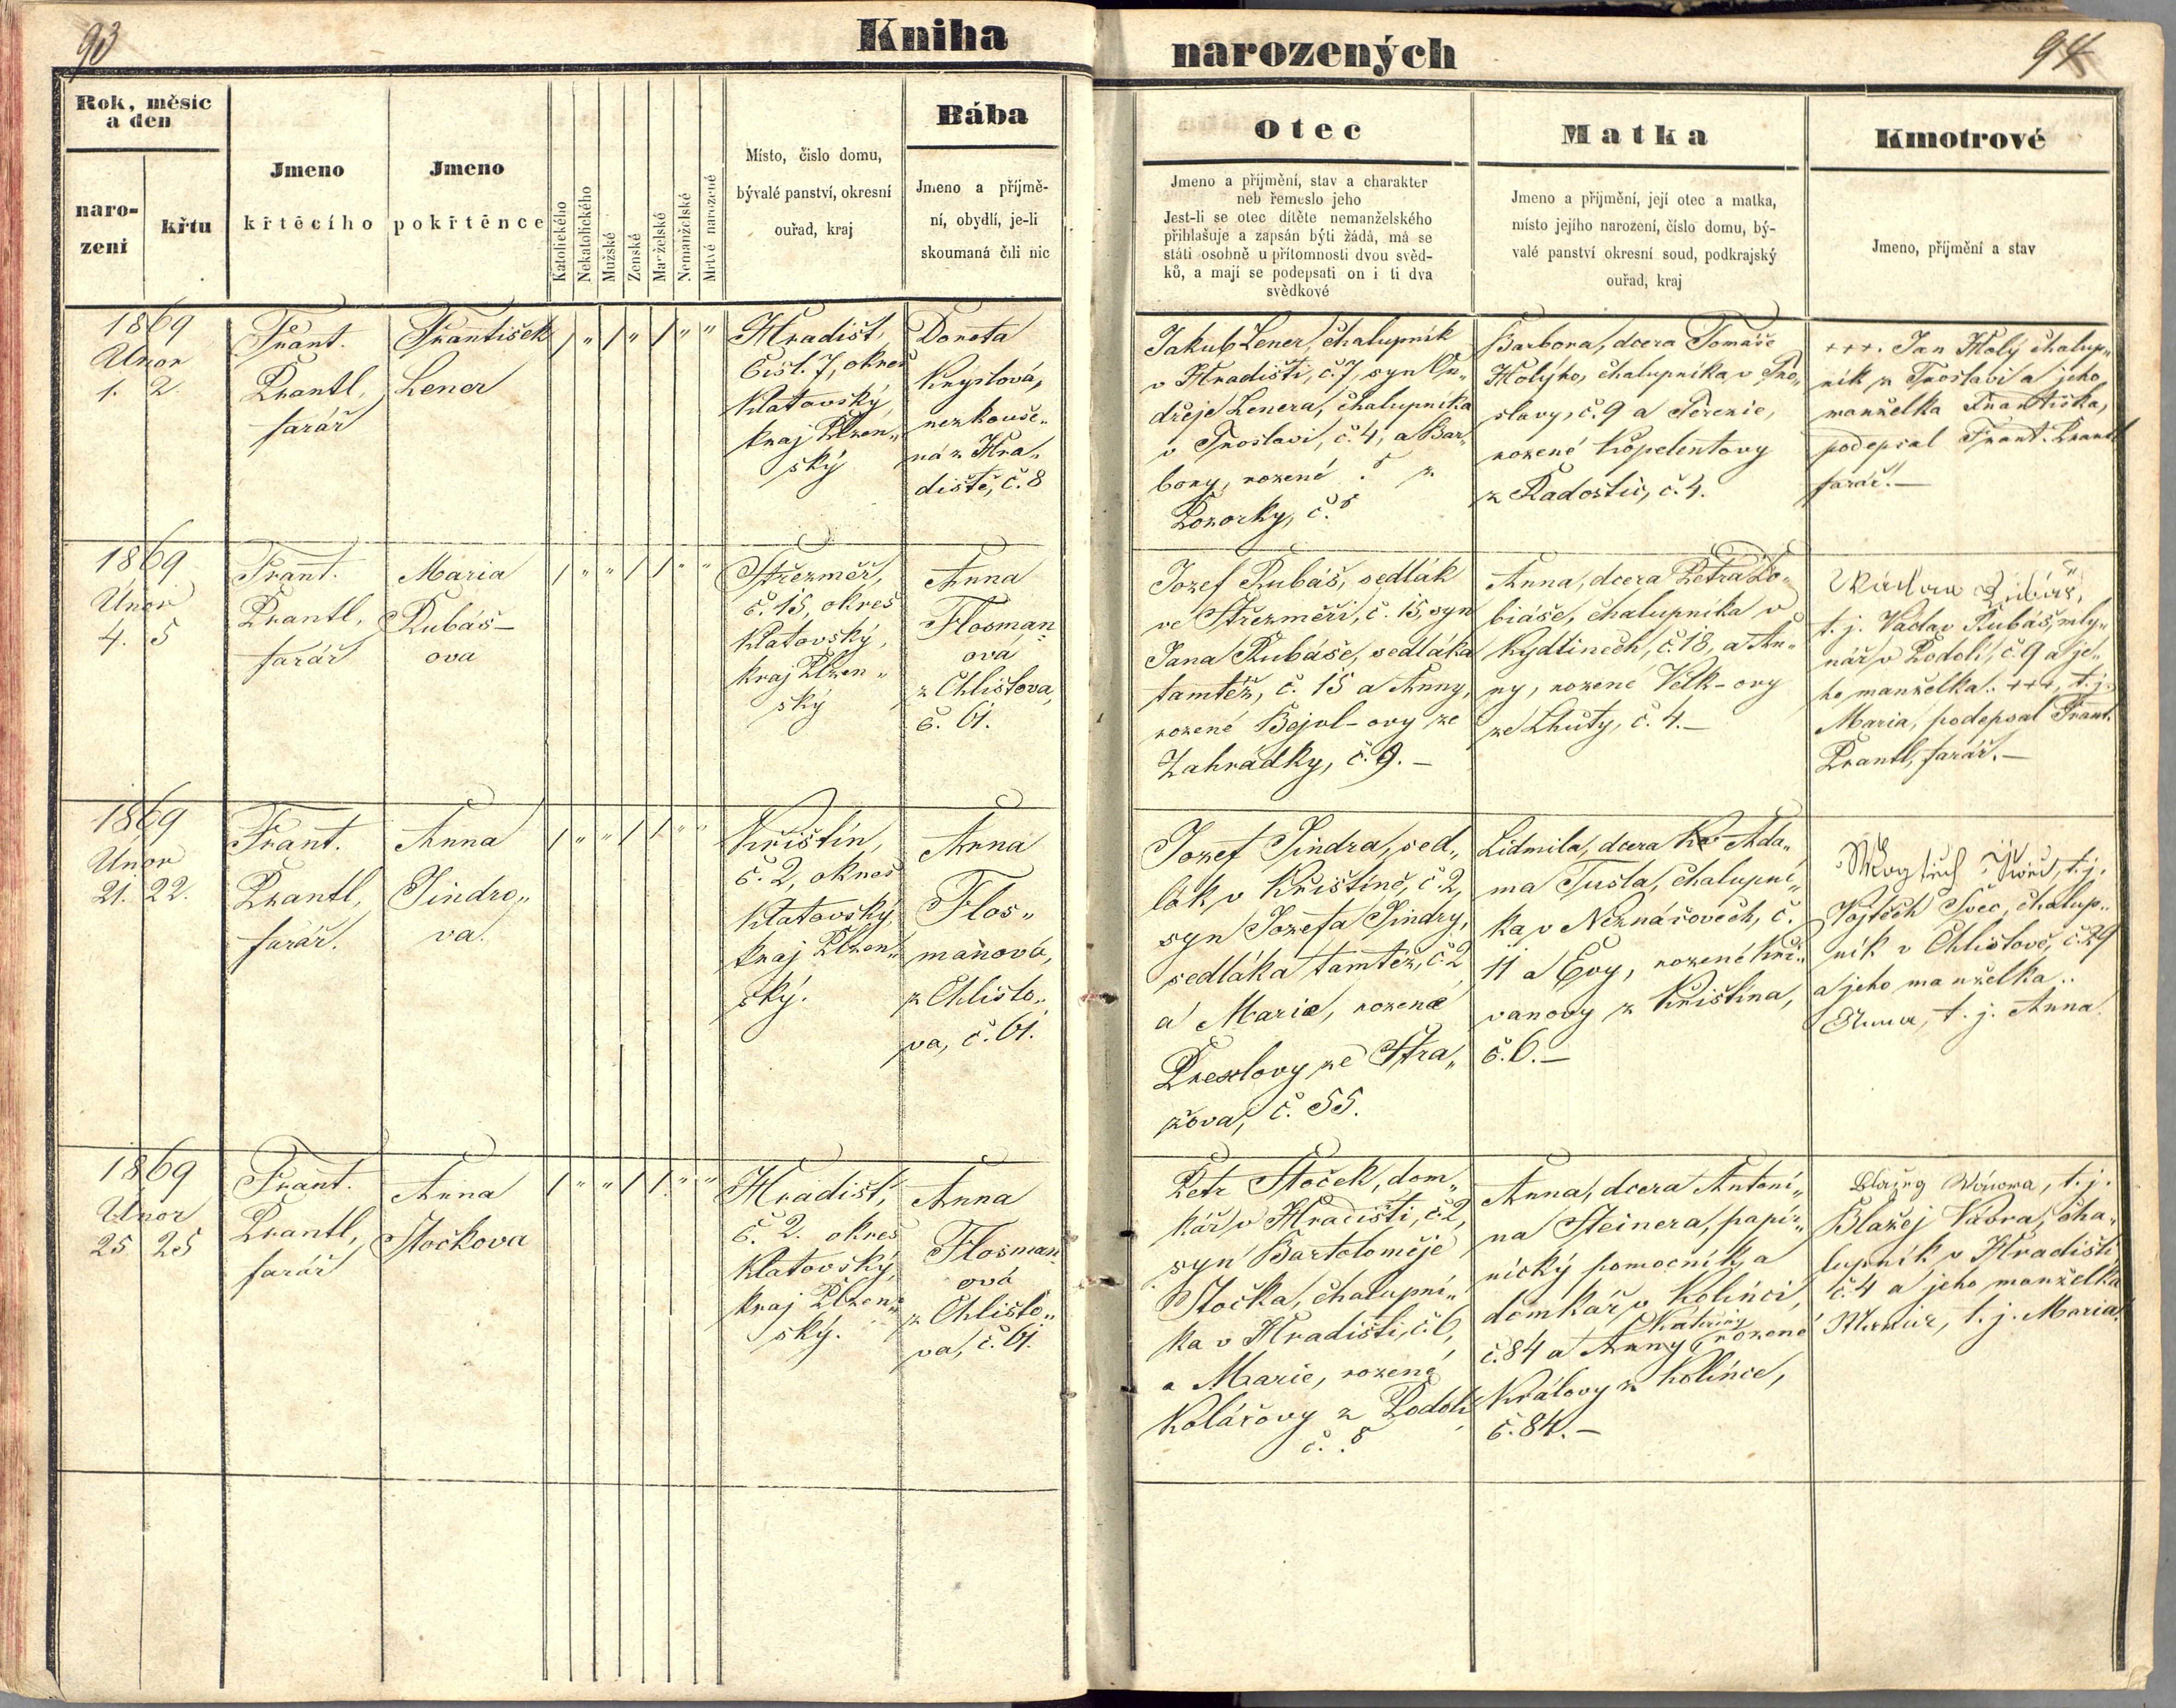 93
Kniha
narozených
94
Rok, měsíc
a den
naro-
zení
křtu
Jmeno
křtěcího
Jmeno
pokřtěnce
Katolického
Nekatolického
Mužské
Ženské
Manželské
Nemanželské
Mrtvě narozené
Místo, čislo domu,
bývalé panství, okresní
ouřad, kraj
Bába
Jmeno a příjmě-
ní, obydlí, je-li
skoumaná čili nic
Otec
Jmeno a přijmění, stav a charakter
neb řemeslo jeho
Jest-li se otec dítěte nemanželského
přihlašuje a zapsán býti žádá, má se
státi osobně u přítomnosti dvou svěd-
ků, a mají se podepsati on i ti dva
svědkové
Matka
Jmeno a přijmění, její otec a matka,
místo jejího narození, číslo domu, bý-
valé panství okresní soud, podkrajský
ouřad, kraj
Kmotrové
Jmeno, příjmění a stav
1869
Únor
1. 2.
Frant.
Prantl,
farář
František
Lener
/ " / " / " "
Hradišt,
čisl. 7, okres
Klatovský
kraj Plzen„
ský
Doneta
Knyslová,
nezkouše„
ná z Hra„
diště, č. 8
Jakub Lener, chalupník
v Hradišti, č. 7, syn On„
dřeje Lenera, chalupníka
v Tnoslavi, č. 4, a Bar„
bory, rozené . z
Pozorky, č.
Barbora, dcera Tomáše
Holýho, chalupníka v Tno„
slavy, č. 9 a Terezie,
rozené Kopelentovy
z Radostic, č. 4.
+++. Jan Holý chalup„
ník z Tnoslavi a jeho
manželka Františka,
podepsal Frant. Prantl
farář. —
1869
Únor
4. 5
Frant.
Prantl,
farář
Maria
Rubáš–
ova
/ " " / / " "
Střezměř,
č. 15, okres
Klatovský,
kraj Plzen„
ský
Anna
Flosman
ová
z Chlistova,
č. 61.
Jozef Rubáš, sedlák
ve Střezměři, č. 15, syn
Jana Rubáše, sedláka
tamtéž, č. 15 a Anny,
rozené Bejvl–ovy ze
Zahrádky, č. 9. —
Anna, dcera Petra To„
biáše, chalupníka v
Kydlinech, č. 18, a An„
ny, rozené Velk–ovy
ze Lhuty, č. 4. —
Václav Rubáš,
t. j. Vaclav Rubáš, mly„
nář v Podolí, č. 9 a je„
ho manželka.. +++, t. j.
Maria, podepsal Frant.
Prantl, farář. —
1869
Únor
21. 22.
Frant.
Prantl,
farář.
Anna
Jindro„
va.
/ " " / / " "
Křištín,
č. 2, okres
Klatovský,
kraj Plzen„
ský.
Anna
Flos„
manova,
z Chlisto„
va, č. 61.
Jozef Jindra, sed„
lák v Křištíně, č. 2,
syn Jozefa Jindry,
sedláka tamtéž, č. 2
a Marie, rozené
Drexlovy ze Stra„
žova, č. 55.
Lidmila, dcera Ada„
ma Tusla, chalupní„
ka v Neznašovech, č.
11 a Evy, rozené Kři„
vanovy z Křištína,
č. 6. —
Wogtěch Sswec, t. j.
Vojtěch Švec, chalup„
ník v Chlistově, č. 29
a jeho manželka..
Anna, t. j. Anna.
1869
Únor
25 25
Frant.
Prantl,
farář
Anna
Stočkova
/ " " / / " "
Hradišt,
č. 2. okres
Klatovský,
kraj Plzen„
ský.
Anna
Flosman
ová
z Chlisto„
va, č. 61.
Petr Stoček, dom„
kář v Hradišti, č. 2,
syn Bartoloměje
Stočka, chalupní„
ka v Hradišti, č. 6,
a Marie, rozené
Kolářovy z Podolí
č. .
Anna, dcera Antoni„
na Steinera, papír„
nický pomocník, a
domkář v Kolinci,
Kateřiny
č. 84 a Anny, rozené
Královy z Kolince,
č. 84. —
Blažeg Wáwra, t. j.
Blažej Vávra, cha„
lupník v Hradišti
č. 4 a jeho manželka
Marie, t. j. Maria.